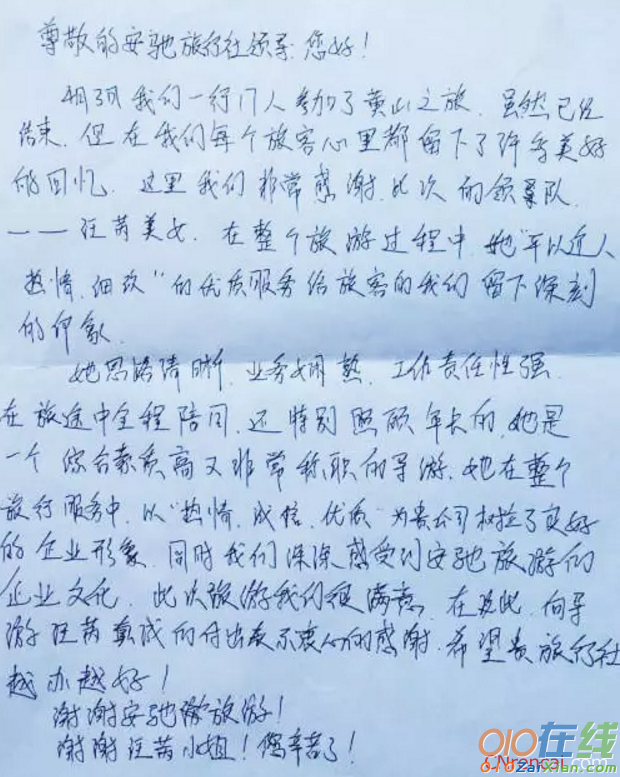 尊敬的安驰旅行社领导：您好！
相张我们一行17人参加了黄山之旅，虽然已经
结束，但在我们每个旅客心里都留下了许多美好
的回忆，这里我们非常感谢此次的领队，
——汪芮美女，在整个旅游过程中，她"平以近人
热情，细致"的优质服务给旅客的我们留下深刻
的印象
她思路清晰，业务娴熟，工作责任性强，
在旅途中全程陪同，还特别照顾年长的，她是
一个综合素质高又非常称职的导游，她在整个
旅行服务中，以"热情，成信，优质"为贵公司树拉了良好
的企业形象，同时我们深深感受到安驰旅游的
企业文化，此次旅游我们很满意，在此，向导
游汪芮真成的付出表示衷心的感谢，希望贵旅行社
越办越好！
谢谢安驰旅游！
谢谢汪芮小姐！您辛苦了！
010在线
CNrencai
010zaixian.com